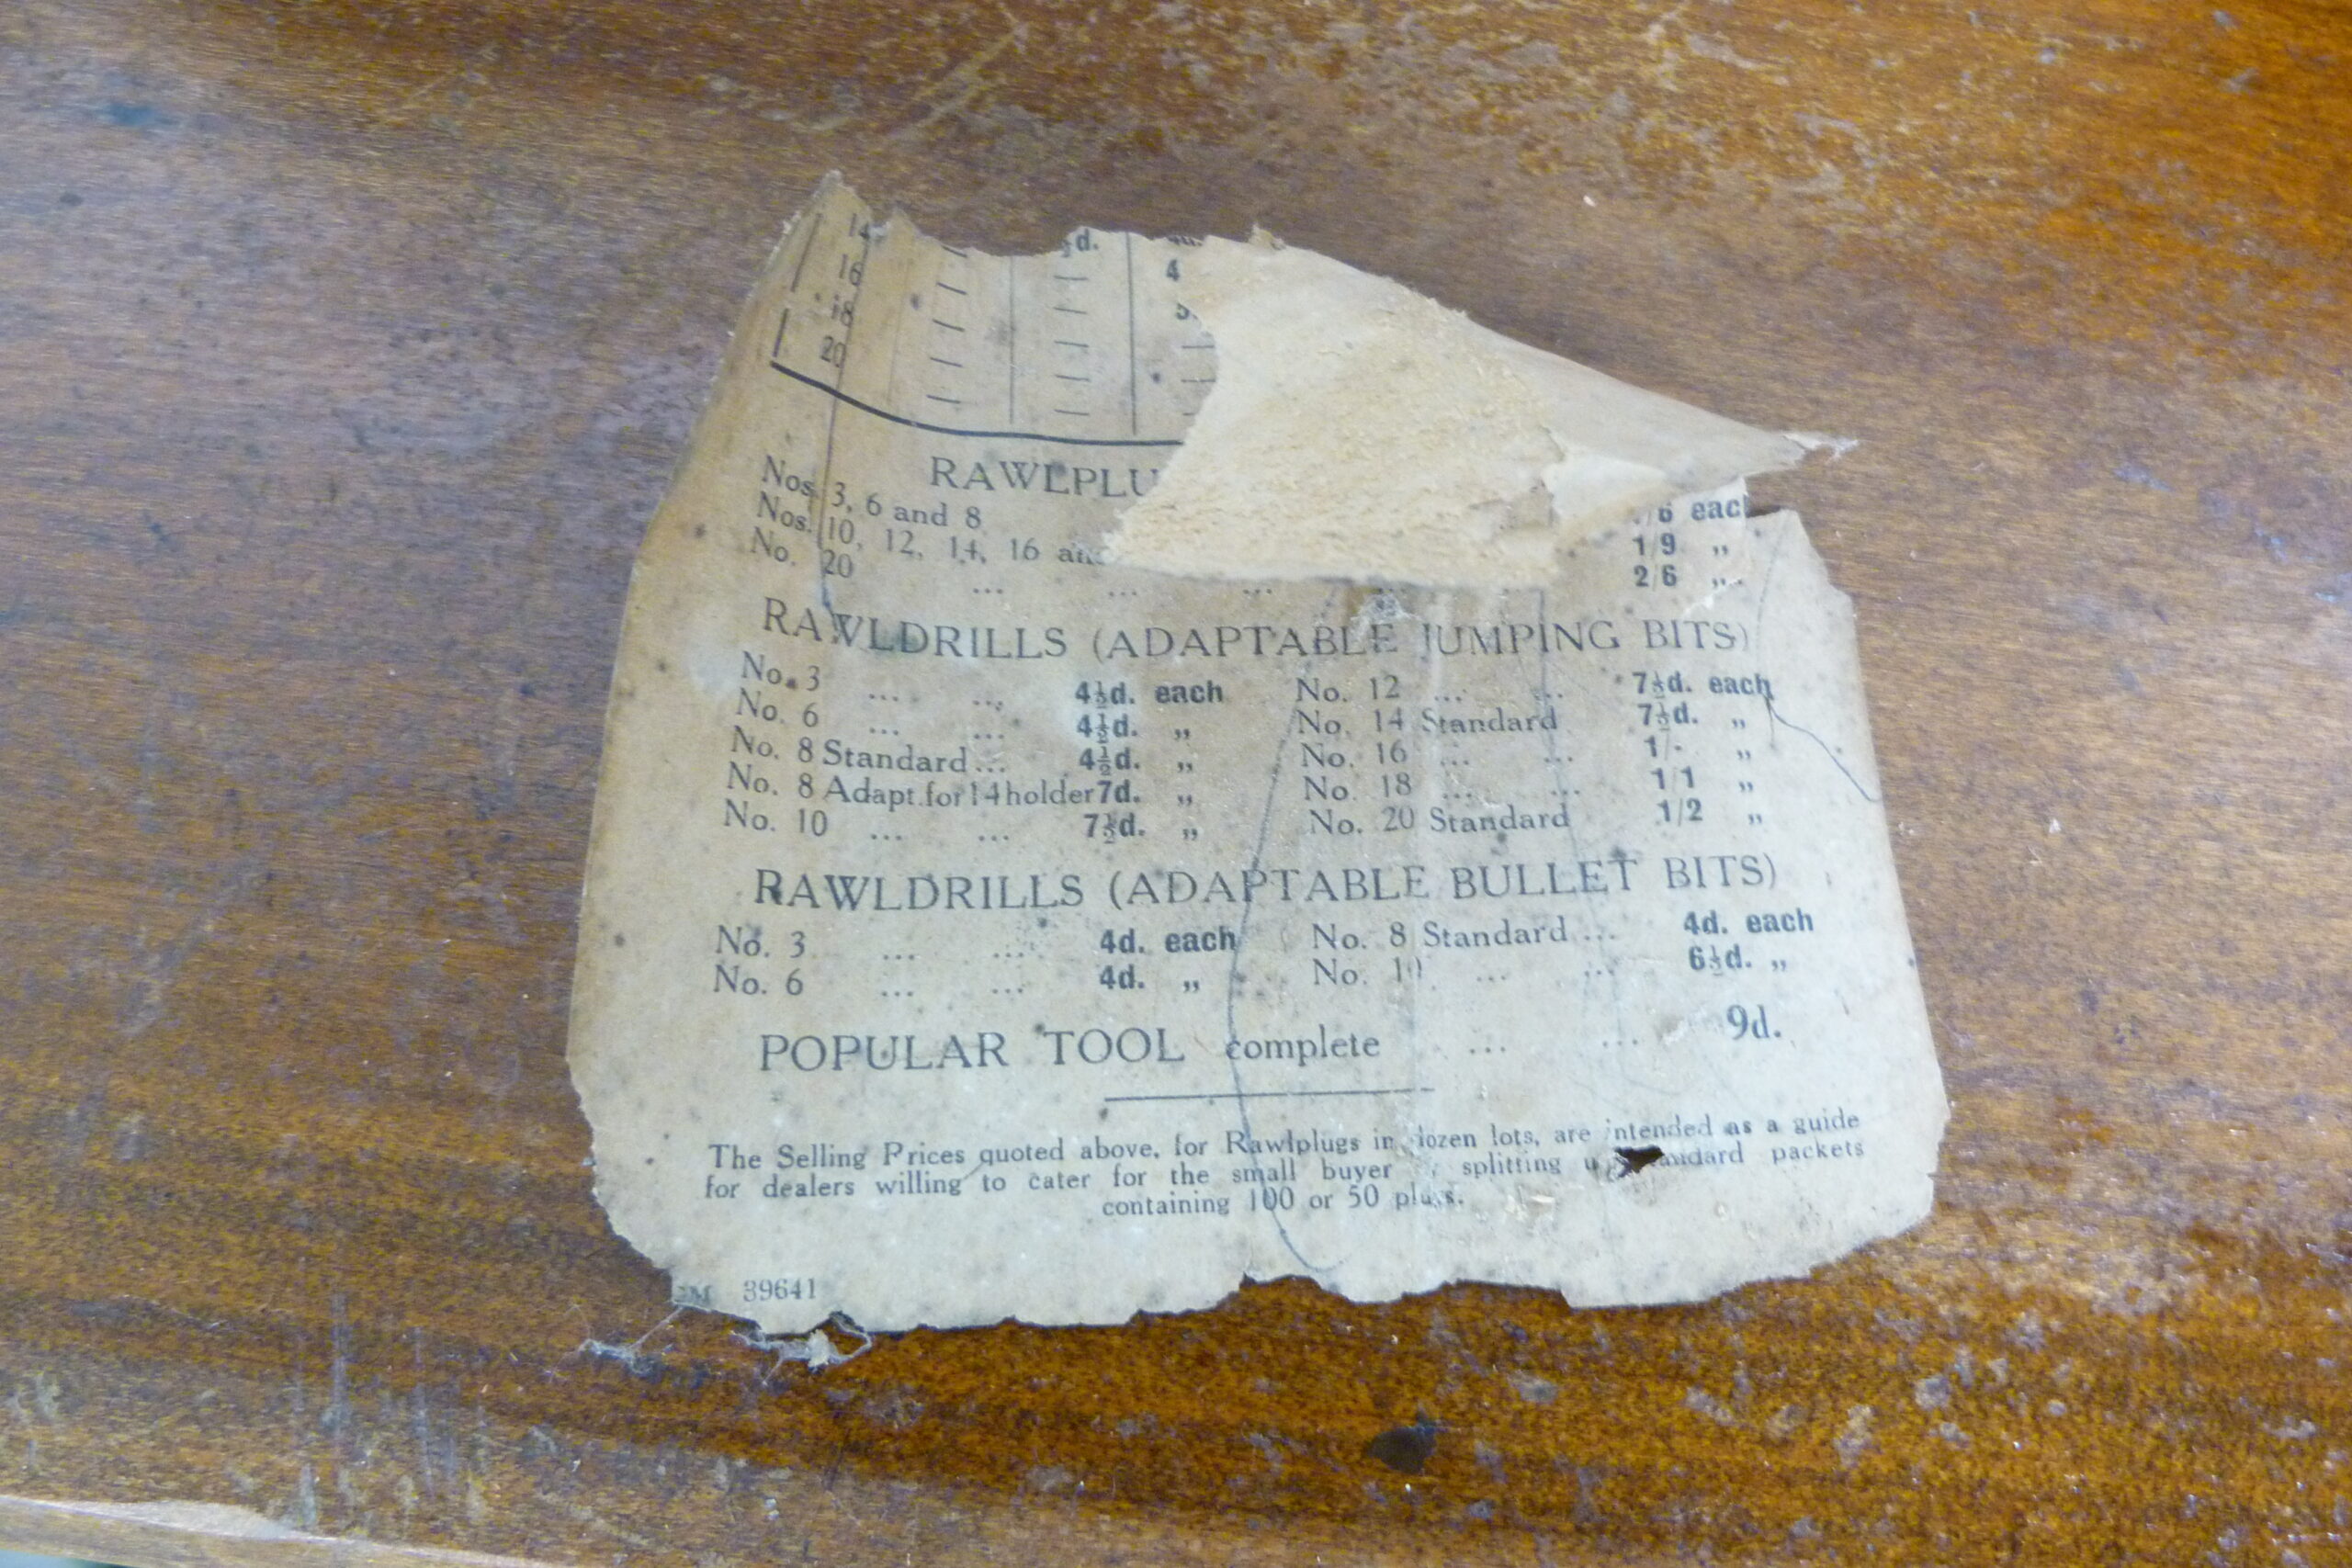 14
d.
16
4
18
20
RAWLPLU
Nos. 3, 6 and 8 /6 each
Nos. 10, 12, 14, 16 1/9 „
No. 20 ... ... ... 2/6 „
RAWLDRILLS (ADAPTABLE JUMPING BITS)
No. 3 ... ... 4½d. each No. 12 ... ... 7½d. each
No. 6 ... ... 4½d. „ No. 14 Standard 7½d. „
No. 8 Standard ... 4½d. „ No. 16 ... ... 1/- „
No. 8 Adapt. for 14 holder 7d. „ No. 18 ... ... 1/1 „
No. 10 ... ... 7½d. „ No. 20 Standard 1/2 „
RAWLDRILLS (ADAPTABLE BULLET BITS)
No. 3 ... ... 4d. each No. 8 Standard ... 4d. each
No. 6 ... ... 4d. „ No. 10 ... ... 6½d. „
POPULAR TOOL complete ... ... 9d.
The Selling Prices quoted above, for Rawlplugs in dozen lots, are intended as a guide
for dealers willing to cater for the small buyer splitting standard packets
containing 100 or 50 plugs.
39641